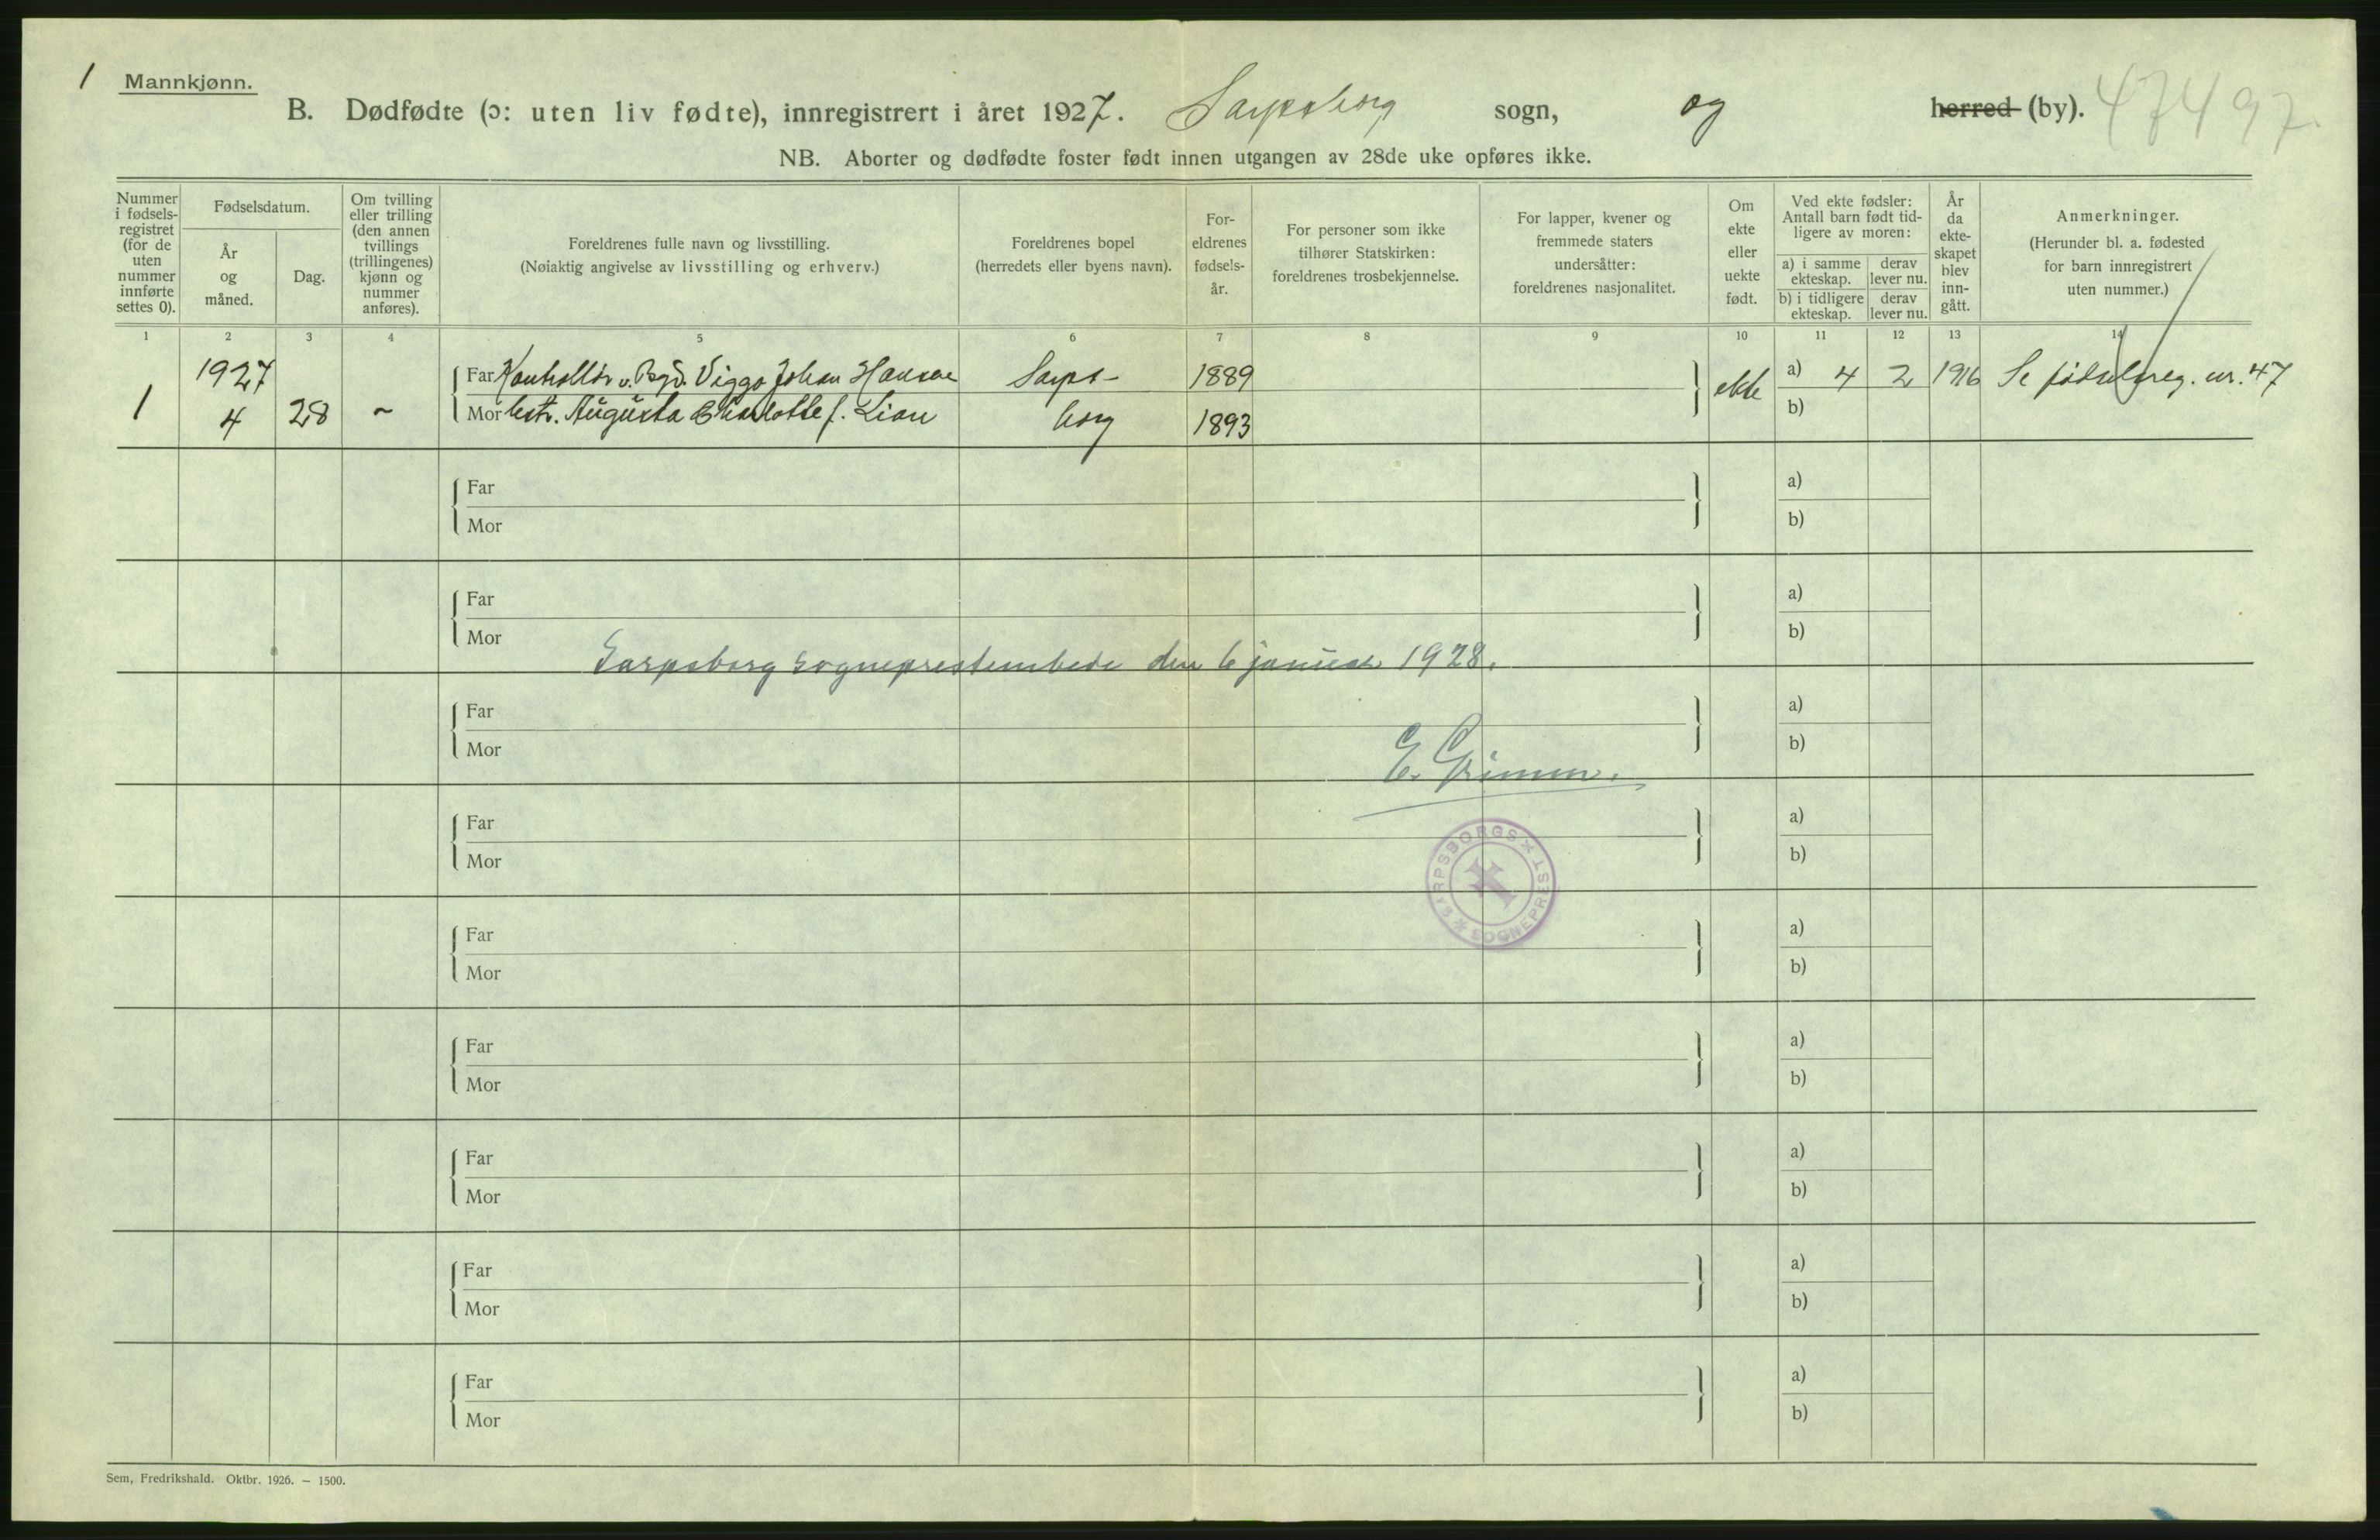 1 Mannkjønn.
B. Dødfødte (ɔ: uten liv fødte), innregistrert i året 1927. Sarpsborg sogn, og herred (by). 47497.
NB. Aborter og dødfødte foster født innen utgangen av 28de uke opføres ikke.
Nummer i fødsels-registret (for de uten nummer innførte settes 0).
Fødselsdatum.
År og måned.
Dag.
Om tvilling eller trilling (den annen tvillings (trillingenes) kjønn og nummer anføres).
Foreldrenes fulle navn og livsstilling.
(Nøiaktig angivelse av livsstilling og erhverv.)
Foreldrenes bopel
(herredets eller byens navn).
For-eldrenes fødsels-år.
For personer som ikke tilhører Statskirken: foreldrenes trosbekjennelse.
For lapper, kvener og fremmede staters undersåtter: foreldrenes nasjonalitet.
Om ekte eller uekte født.
Ved ekte fødsler: Antall barn født tid-ligere av moren:
a) i samme ekteskap. derav lever nu.
b) i tidligere ekteskap. derav lever nu.
År da ekte-skapet blev inn-gått.
Anmerkninger.
(Herunder bl. a. fødested for barn innregistrert uten nummer.)
1 2 3 4 5 6 7 8 9 10 11 12 13 14
1 1927 4 28 ~
Far Kontrollør v. Viggo Johan Hansen Sarps- 1889 ekte a) 4 2 1916 Se fødselsreg. nr. 47
Mor hstr. Augusta Charlotte f. Lian borg 1893 b)
Far a)
Mor b)
Far a)
Mor b)
Sarpsborg sogneprestembede den 6 januar 1928.
Far a)
Mor b)
E. Grimm.
Far a)
Mor b)
SARPSBORGS SOGNEPREST
Far a)
Mor b)
Far a)
Mor b)
Far a)
Mor b)
Far a)
Mor b)
Far a)
Mor b)
Sem, Fredrikshald. Oktbr. 1926. – 1500.